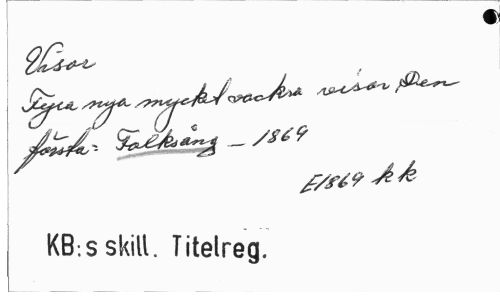 Visor
Fyra nya mycket vackra visor, Den
första: Folksång - 1869
E1869 kk
KB:s skill. Titelreg.